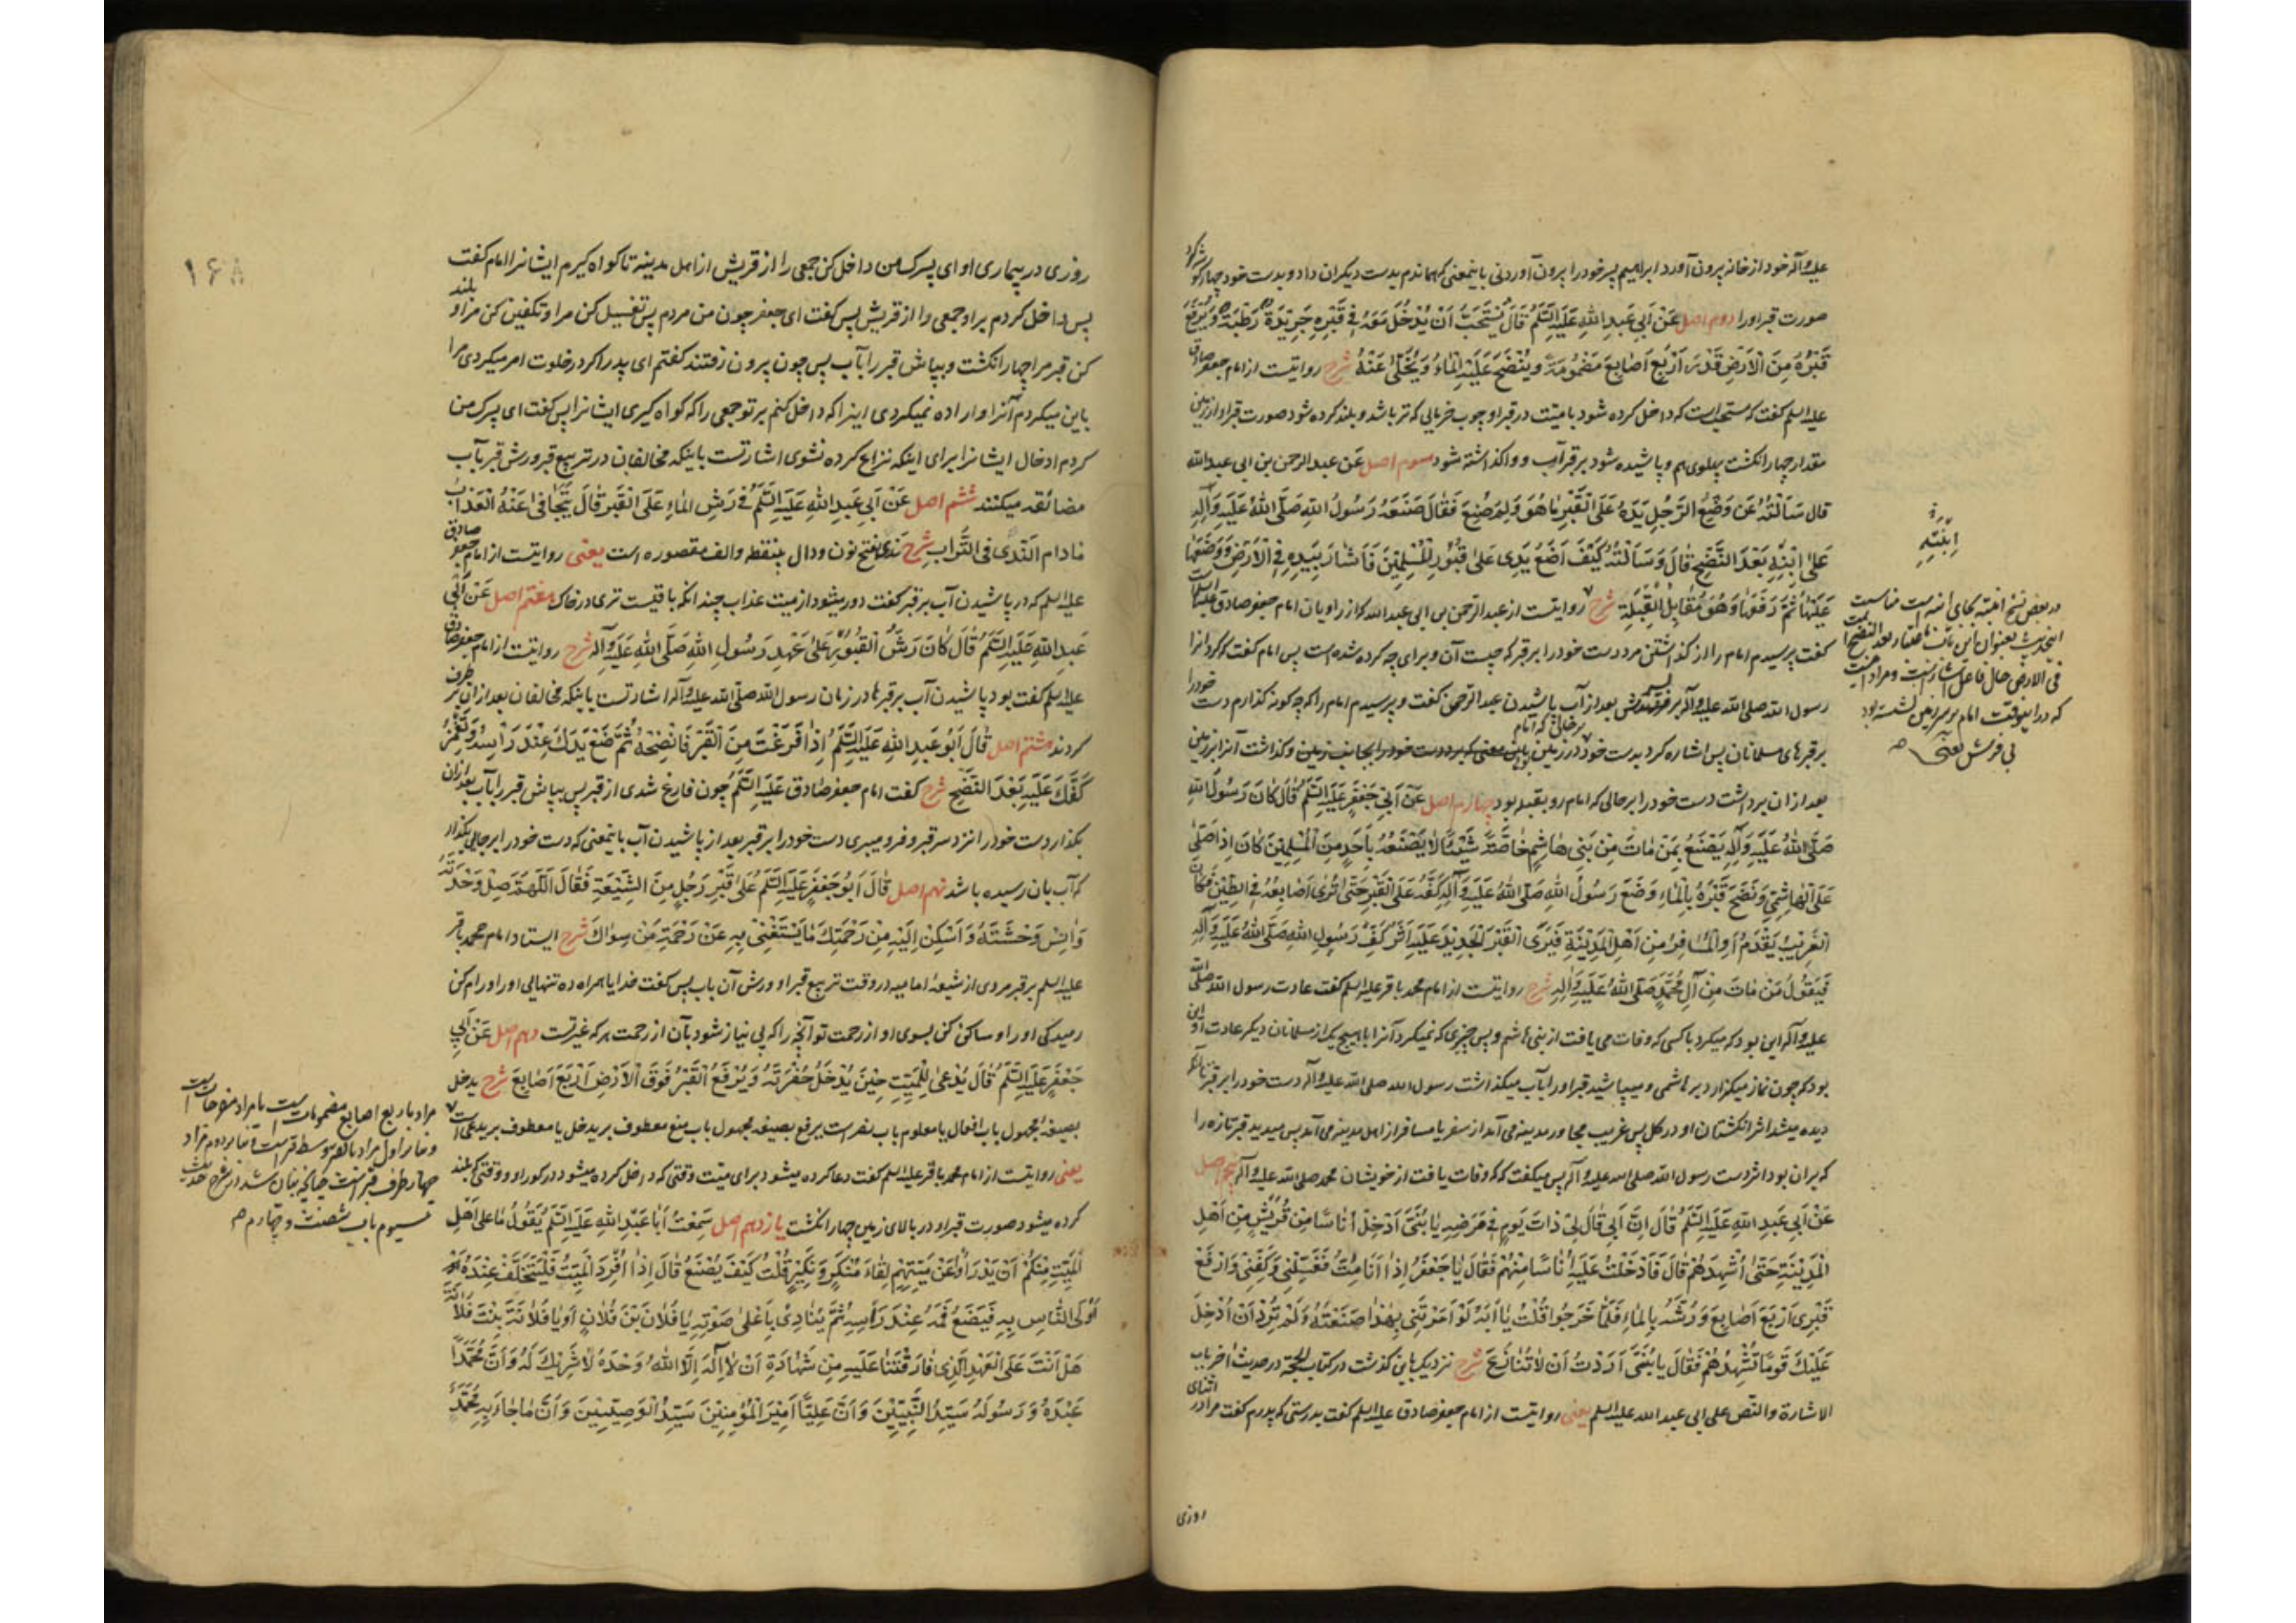 علیه و آله خود از خانه بیرون آورد ابراهیم پسر خود را بیرون آوردنی باینمعنی که هماندم بدست دیگران داد و بدست خود چهار گوشه کرد
صورت قبر او را دوم اصل عَنْ اَبِی عَبدِ اللهِ عَلَیهِ السَّلَمُ قَالَ یُسْتَحَبُّ اَنْ یُدْخَلَ مَعَهُ فِی قَبْرِهِ جَرِیدَةٌ رَطْبَةٌ وَیُرْفَعُ
قَبْرُهُ مِنَ الْاَرْضِ قَدْرَ اَرْبَعِ اَصَابِعَ مَضْمُومَةٍ وَیُنْضَحُ عَلَیْهِ الْمَاءُ وَیُخَلّٰی عَنْهُ شرح روایتست از امام جعفر صادق
علیه السلم گفت که مستحب است که داخل کرده شود با میّت در قبر او چوب خرمایی که تر باشد و بلند کرده شود صورت قبر او از زمین
مقدار چهار انگشت پهلوی هم و پاشیده شود بر قبر آب و واگذاشته شود سوم اصل عَن عبد الرحمن بن ابی عبد الله
قال سَاَلْتُهُ عَن وَضْعِ الرَّجُلِ یَدَهُ عَلَی الْقَبْرِ مَا هُوَ وَلِمَ صُنِعَ فَقَالَ صَنَعَهُ رَسُولُ اللهِ صَلَّی اللهُ عَلَیْهِ وَآلِهِ
عَلَی ابْنِهِ بَعْدَ النَّضْحِ قَالَ وَسَاَلْتُهُ کَیْفَ اَضَعُ یَدِی عَلیٰ قُبُورِ الْمُسْلِمِینَ فَاَشَارَ بِیَدِهِ فِی الْاَرْضِ وَوَضَعَهَا
عَلَیْهَا ثُمَّ رَفَعَهَا وَهُوَ مُقَابِلُ الْقِبْلَةِ شرح روایتست از عبد الرحمن بن ابی عبد الله که از راویان امام جعفر صادق علیه السلم
گفت پرسیدم امام را از گذاشتن مرد دست خود را بر قبر که چیست آن و برای چه کرده شده است پس امام گفت که کرد انرا
رسول الله صلی الله علیه و آله بر قبر پسرش بعد از آب پاشیدن عبد الرحمن گفت و پرسیدم امام را که چگونه گذارم دست خود را
بر قبرهای مسلمانان پس اشاره کرد بدست خود در زمین و گذاشت آنرا بر زمین
بعد از ان برداشت دست خود را بر حالی که امام رو بقبله بود چهارم اصل عَنْ اَبِی جَعْفَرٍ عَلَیهِ السَّلَمُ قَالَ کَانَ رَسُولُ اللهِ
صَلَّی اللهُ عَلَیْهِ وَآلِهِ یَصْنَعُ بِمَنْ مَاتَ مِنْ بَنِی هَاشِمٍ خَاصَّةً شَیْئًا لَا یَصْنَعُهُ بِاَحَدٍ مِنَ الْمُسْلِمِینَ کَانَ اِذَا صَلَّی
عَلَی الْهَاشِمِیِّ وَنَضَحَ قَبْرَهُ بِالْمَاءِ وَضَعَ رَسُولُ اللهِ صَلَّی اللهُ عَلَیْهِ وَآلِهِ کَفَّهُ عَلَی الْقَبْرِ حَتّٰی تُرٰی اَصَابِعُهُ فِی الطِّینِ فَکَانَ
الْغَرِیبُ یَقْدَمُ اَوِ الْمُسَافِرُ مِنْ اَهْلِ الْمَدِینَةِ فَیَرَی الْقَبْرَ الْجَدِیدَ عَلَیْهِ اَثَرُ کَفِّ رَسُولِ اللهِ صَلَّی اللهُ عَلَیْهِ وَآلِهِ
فَیَقُولُ مَنْ مَاتَ مِنْ آلِ مُحَمَّدٍ صَلَّی اللهُ عَلَیْهِ وَآلِهِ شرح روایتست از امام محمد باقر علیه السلم گفت عادت رسول الله صلی الله
علیه و آله این بود که میکرد با کسی که وفات می یافت از بنی هاشم و بس چیزی که نمیکرد آنرا با هیچ یک از مسلمانان دیگر عادت او این
بود که چون نماز میگزارد بر هاشمی و میپاشید قبر او را بآب میگذاشت رسول الله صلی الله علیه و آله دست خود را بر قبر تا آنکه
دیده میشد اثر انگشتان او در گل پس غریب مجاور مدینه می آمد از سفر یا مسافر از اهل مدینه می آمد پس میدید قبر تازه را
که بر ان بود اثر دست رسول الله صلی الله علیه و آله پس میگفت که که وفات یافت از خویشان محمد صلی الله علیه و آله پنجم اصل
عَنْ اَبِی عَبدِ اللهِ عَلَیهِ السَّلَمُ قَالَ اِنَّ اَبِی قَالَ لِی ذَاتَ یَوْمٍ فِی مَرَضِهِ یَا بُنَیَّ اَدْخِلْ اُنَاسًا مِنْ قُرَیْشٍ مِنْ اَهْلِ
الْمَدِینَةِ حَتّٰی اُشْهِدَهُمْ قَالَ فَاَدْخَلْتُ عَلَیْهِ اُنَاسًا مِنْهُمْ فَقَالَ یَا جَعْفَرُ اِذَا اَنَا مِتُّ فَغَسِّلْنِی وَکَفِّنِّی وَارْفَعْ
قَبْرِی اَرْبَعَ اَصَابِعَ وَرُشَّهُ بِالْمَاءِ فَلَمَّا خَرَجُوا قُلْتُ یَا اَبَهْ لَوْ اَمَرْتَنِی بِهٰذَا صَنَعْتُهُ وَلَمْ تُرِدْ اَنْ اُدْخِلَ
عَلَیْكَ قَوْمًا تُشْهِدُهُمْ فَقَالَ یَا بُنَیَّ اَرَدْتُ اَنْ لَا تُنَازَعَ شرح نزدیک باین گذشت در کتاب الحجة در حدیث اخر باب
الاشارة والنص علی ابی عبد الله علیه السلم یعنی روایتست از امام جعفر صادق علیه السلم گفت بدرستی که پدرم گفت مرا در اثنای
روزی
ابْنَیْهِ
در بعض نسخ
بی فرش
روزی در بیماری او ای پسرک من داخل کن جمعی را از قریش از اهل مدینه تا گواه گیرم ایشانرا امام گفت
پس داخل کردم بر او جمعی را از قریش پس گفت ای جعفر چون من مردم پس تغسیل کن مرا و تکفین کن مرا و بلند
کن قبر مرا چهار انگشت و بپاش قبر را بآب پس چون بیرون رفتند گفتم ای پدر اگر در خلوت امر میکردی مرا
باین میکردم آنرا و اراده نمیکردی اینرا که داخل کنم بر تو جمعی را که گواه گیری ایشانرا پس گفت ای پسرک من
کردم ادخال ایشانرا برای اینکه نزاع کرده نشوی اشارتست باینکه مخالفان در تربیع قبر و رش قبر بآب
مضائقه میکنند ششم اصل عَنْ اَبِی عَبدِ اللهِ عَلَیهِ السَّلَمُ فِی رَشِّ الْمَاءِ عَلَی الْقَبْرِ قَالَ یَتَجَافٰی عَنْهُ الْعَذَابُ
مَا دَام النَّدٰی فِی التُّرَابِ شرح ندی بفتح نون و دال بینقطه و الف مقصوره است یعنی روایتست از امام جعفر صادق
علیه السلم که در پاشیدن آب بر قبر گفت دور میشود از میت عذاب چندانکه باقیست تری در خاک هفتم اصل عَنْ اَبِی
عَبدِ اللهِ عَلَیهِ السَّلَمُ قَالَ کَانَ رَشُّ الْقُبُورِ عَلیٰ عَهْدِ رَسُولِ اللهِ صَلَّی اللهُ عَلَیْهِ وَآلِهِ شرح روایتست از امام جعفر صادق
علیه السلم گفت بود پاشیدن آب بر قبرها در زمان رسول الله صلی الله علیه و آله اشارتست باینکه مخالفان بعد از ان بر طرف
کردند هشتم اصل قَالَ اَبُو عَبدِ اللهِ عَلَیهِ السَّلَمُ اِذَا فَرَغْتَ مِنَ الْقَبْرِ فَانْضِحْهُ ثُمَّ ضَعْ یَدَكَ عِنْدَ رَاْسِهِ وَتَغْمِزُ
کَفَّكَ عَلَیْهِ بَعْدَ النَّضْحِ شرح گفت امام جعفر صادق عَلَیهِ السَّلَمُ چون فارغ شدی از قبر پس بپاش قبر را بآب بعد از ان
بگذار دست خود را نزد سر قبر و فرو میبری دست خود را بر قبر بعد از پاشیدن آب باینمعنی که دست خود را بر جایی بگذار
که آب بان رسیده باشد نهم اصل قَالَ اَبُو جَعْفَرٍ عَلَیهِ السَّلَمُ عَلیٰ قَبْرِ رَجُلٍ مِنَ الشِّیعَةِ فَقَالَ اللّٰهُمَّ صِلْ وَحْدَتَهُ
وَآنِسْ وَحْشَتَهُ وَاَسْکِنْ اِلَیْهِ مِنْ رَحْمَتِكَ مَا یَسْتَغْنِی بِهِ عَنْ رَحْمَةِ مَنْ سِوَاكَ شرح ایستاد امام محمد باقر
علیه السلم بر قبر مردی از شیعهٔ امامیه در وقت تربیع قبر او و رش آن بآب پس گفت خدایا همراه ده تنهایی او را و رام کن
رمیدگی او را و ساکن کن بسوی او از رحمت تو آنچه را که بی نیاز شود بآن از رحمت هر که غیر تست دهم اصل عَنْ اَبِی
جَعْفَرٍ عَلَیهِ السَّلَمُ قَالَ یُدْعٰی لِلْمَیِّتِ حِینَ یُدْخَلُ حُفْرَتَهُ وَیُرْفَعُ الْقَبْرُ فَوْقَ الْاَرْضِ اَرْبَعَ اَصَابِعَ شرح یدخل
بصیغهٔ مجهول باب افعال یا معلوم باب نصر است یرفع بصیغهٔ مجهول باب منع معطوف بر یدخل یا معطوف بر یدعی است
یعنی روایتست از امام محمد باقر علیه السلم گفت دعا کرده میشود برای میّت وقتی که داخل کرده میشود در گور او و وقتی که بلند
کرده میشود صورت قبر او در بالای زمین چهار انگشت یازدهم اصل سَمِعْتُ اَبَا عَبدِ اللهِ عَلَیهِ السَّلَمُ یَقُولُ مَا عَلیٰ اَهْلِ
الْمَیِّتِ مِنْکُمْ اَنْ یَدْرَاُوا عَنْ مَیِّتِهِمْ لِقَاءَ مُنْکَرٍ وَنَکِیرٍ قُلْتُ کَیْفَ یُصْنَعُ قَالَ اِذَا اُفْرِدَ الْمَیِّتُ فَلْیَتَخَلَّفْ عِنْدَهُ
اَوْلَی النَّاسِ بِهِ فَیَضَعُ فَمَهُ عِنْدَ رَاْسِهِ ثُمَّ یُنَادِی بِاَعْلیٰ صَوْتِهِ یَا فُلَانَ بْنَ فُلَانٍ اَوْ یَا فُلَانَةَ بِنْتَ فُلَانَةَ
هَلْ اَنْتَ عَلَی الْعَهْدِ الَّذِی فَارَقْتَنَا عَلَیْهِ مِنْ شَهَادَةِ اَنْ لَا اِلٰهَ اِلَّا اللهُ وَحْدَهُ لَا شَرِیكَ لَهُ وَاَنَّ مُحَمَّدًا
عَبْدُهُ وَرَسُولُهُ سَیِّدُ النَّبِیِّینَ وَاَنَّ عَلِیًّا اَمِیرَ الْمُؤْمِنِینَ سَیِّدُ الْوَصِیِّینَ وَاَنَّ مَا جَاءَ بِهِ مُحَمَّدٌ
۱۶۸
مراد باربع اصابع مضمومات است یا مراد مفرجات است
چهار طرف قبر است چنانچه بیان شد در شرح حدیث
سیوم باب شصت و چهارم